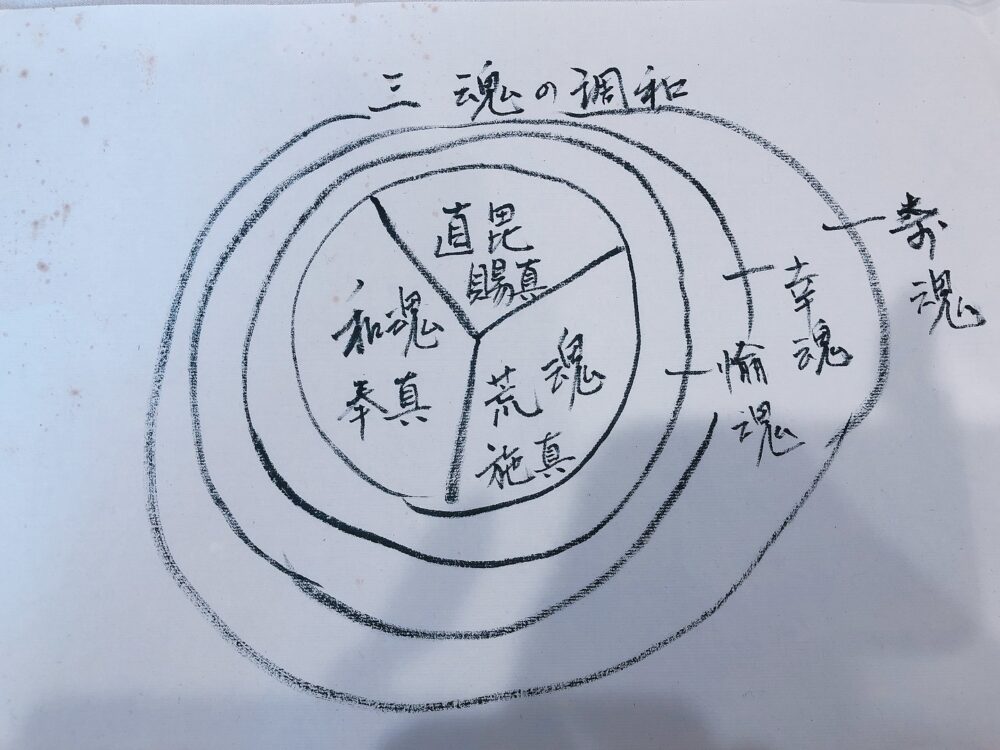 三魂の調和
直毘
賜真
和魂
奉真
荒魂
施真
愉魂
幸魂
寿魂